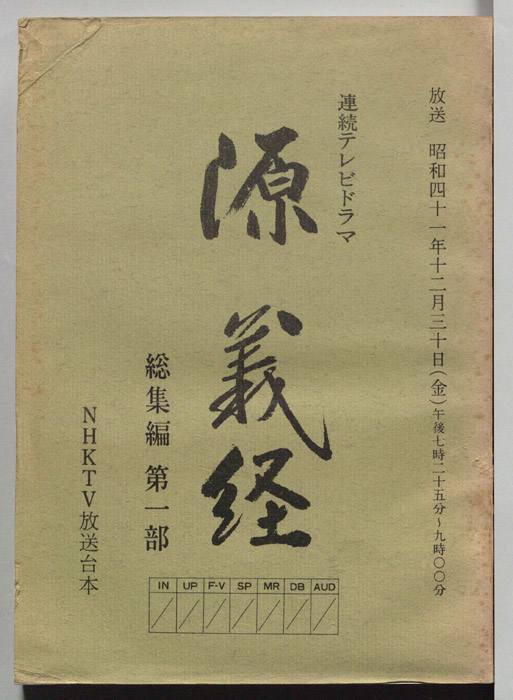 放送　昭和四十一年十二月三十日(金)午後七時二十五分～九時〇〇分
連続テレビドラマ
源義経
総集編　第一部
NHKTV放送台本
IN UP F-V SP MR DB AUD